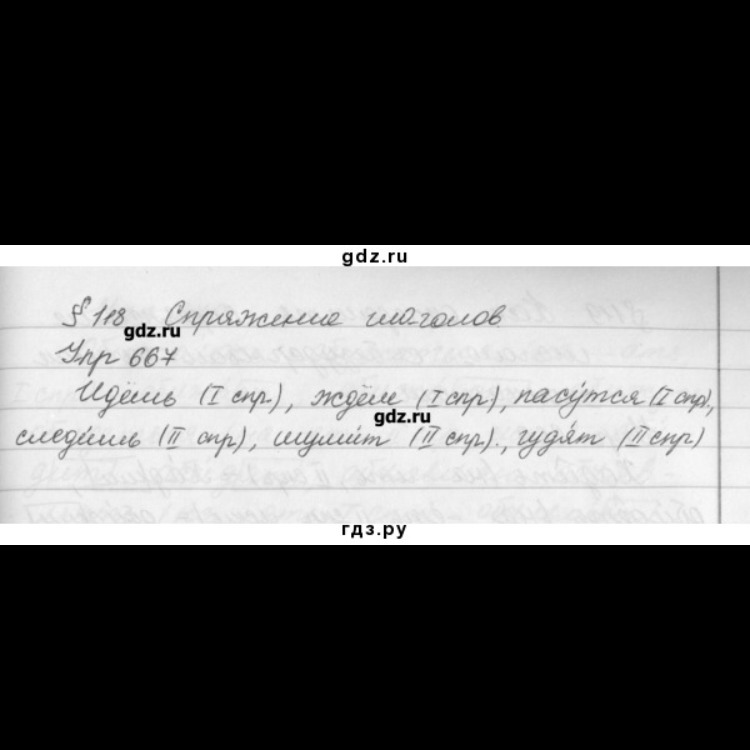 gdz.ru
§ 118 Спряжение глаголов
gdz.ru
Упр 667
Идёшь (I спр.), ждёте (I спр.), пасу́тся (I спр.),
gdz.ru
следи́шь (II спр), шуми́т (II спр)., гудя́т (II спр)
гдз.ру